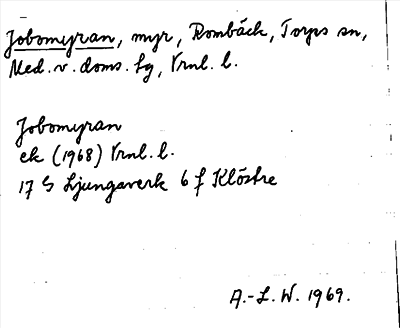 Jobomyran, myr, Rombäck, Torps sn,
Med. v. doms. hg, Vrnl. l.
Jobomyran
ek (1968) Vrnl. l.
17 G Ljungaverk 6 f Klöstre
A.-L. W. 1969.